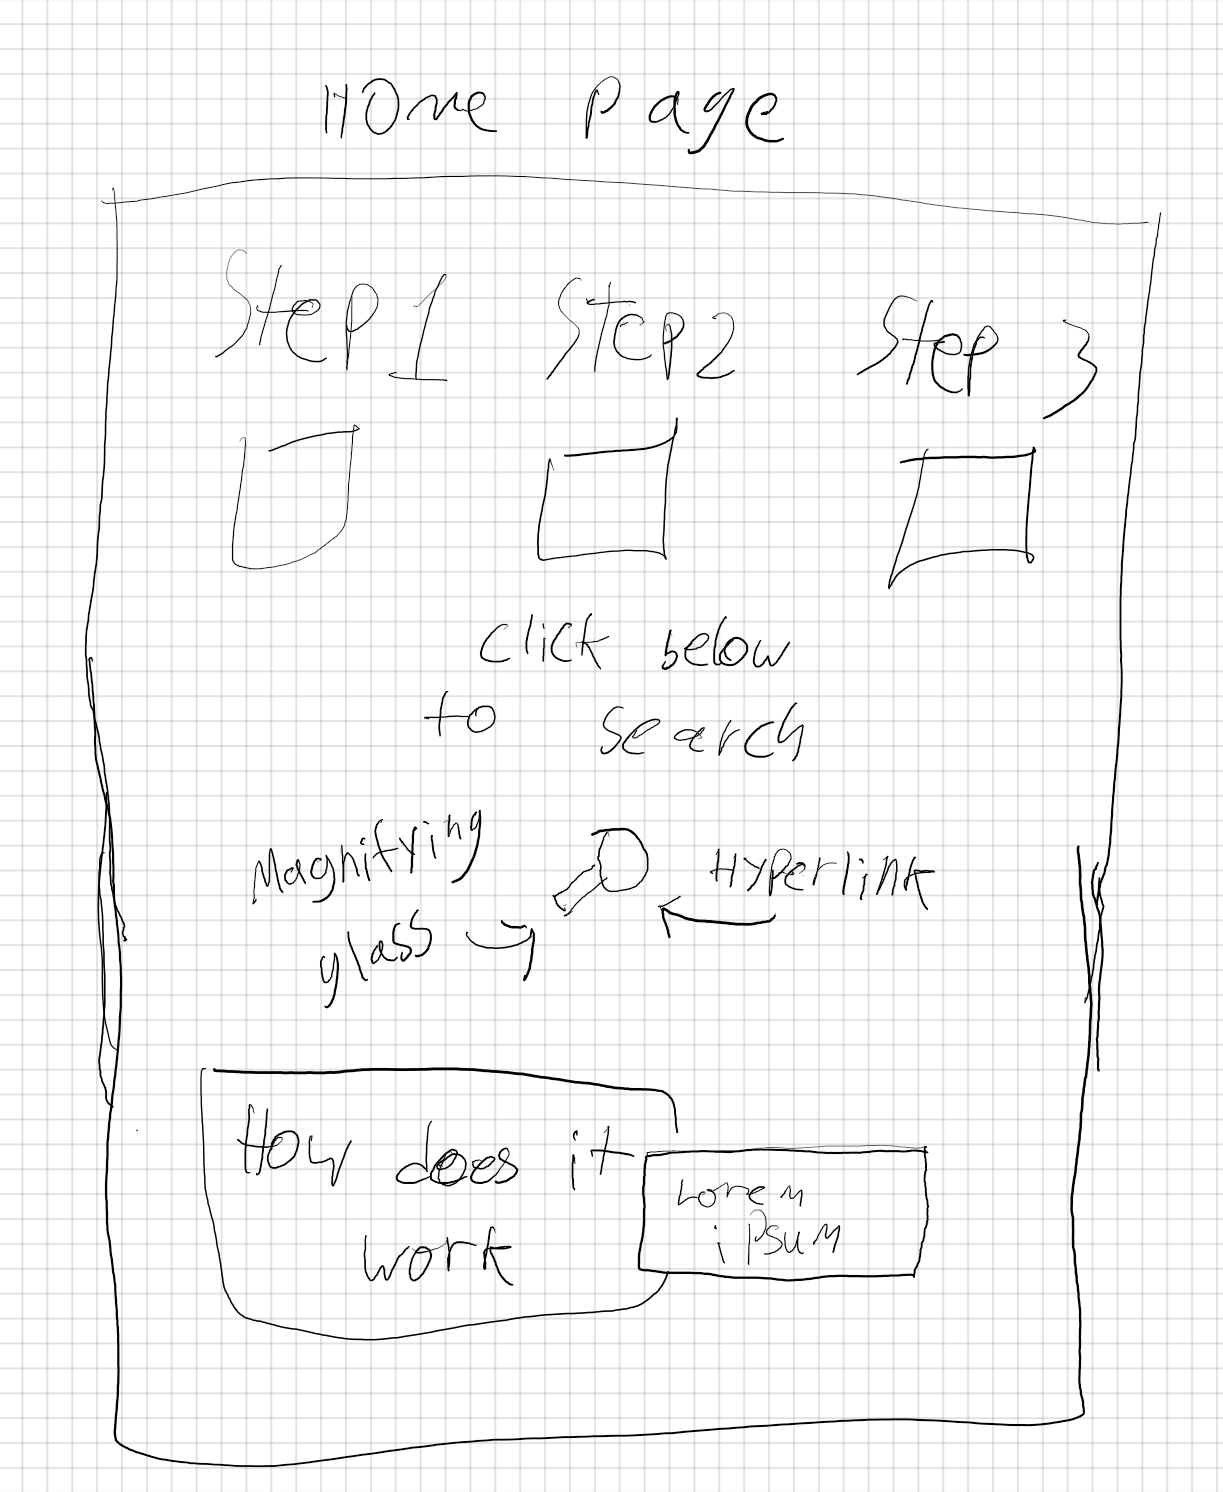 Home Page
Step 1 Step 2 Step 3
click below
to search
Magnifying
glass
Hyperlink
How does it
work
Lorem
ipsum